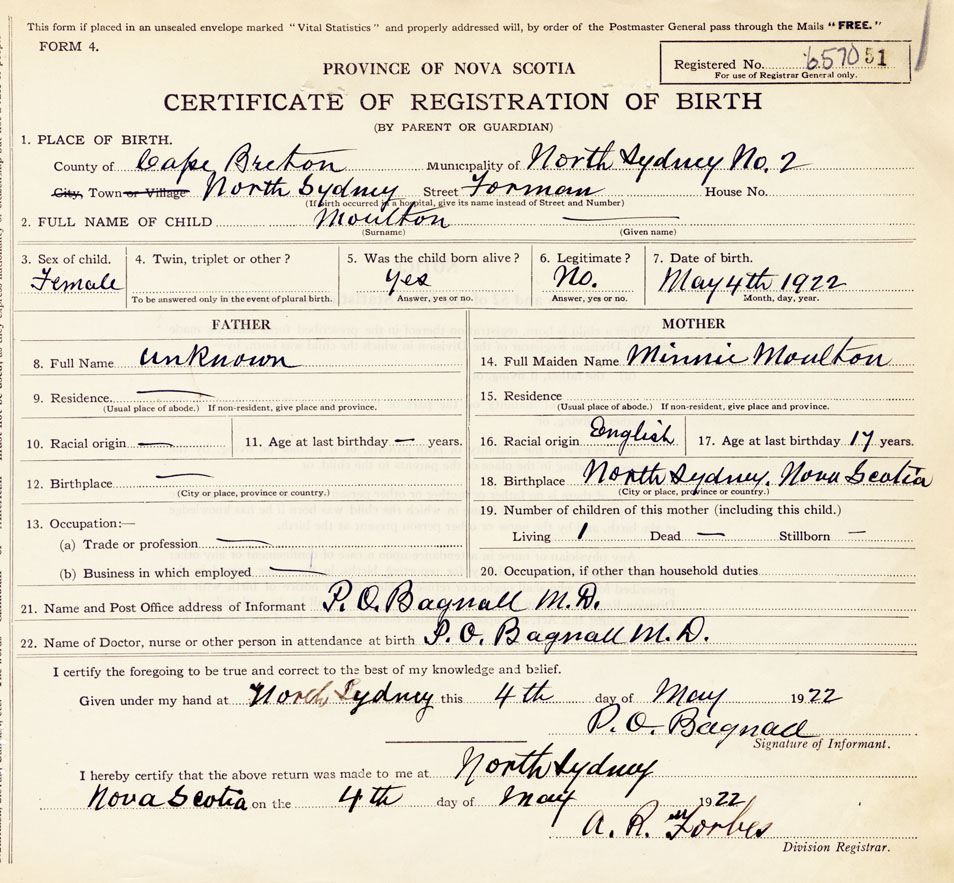 This form if placed in an unsealed envelope marked "Vital Statistics" and properly addressed will, by order of the Postmaster General pass through the Mails "FREE."
FORM 4.
Registered No. 657051
For use of Registrar General only.
PROVINCE OF NOVA SCOTIA
CERTIFICATE OF REGISTRATION OF BIRTH
(BY PARENT OR GUARDIAN)
1. PLACE OF BIRTH.
County of Cape Breton Municipality of North Sydney No. 2
City, Town or Village North Sydney Street Forman House No.
(If birth occurred in a hospital, give its name instead of Street and Number)
2. FULL NAME OF CHILD Moulton —
(Surname) (Given name)
3. Sex of child. 4. Twin, triplet or other? 5. Was the child born alive? 6. Legitimate? 7. Date of birth.
Female yes No. May 4th 1922
To be answered only in the event of plural birth. Answer, yes or no. Answer, yes or no. Month, day, year.
FATHER MOTHER
8. Full Name unknown 14. Full Maiden Name Minnie Moulton
9. Residence. — 15. Residence
(Usual place of abode.) If non-resident, give place and province. (Usual place of abode.) If non-resident, give place and province.
10. Racial origin — 11. Age at last birthday — years. 16. Racial origin English 17. Age at last birthday 17 years.
12. Birthplace — 18. Birthplace North Sydney. Nova Scotia
(City or place, province or country.) (City or place, province or country.)
13. Occupation:— 19. Number of children of this mother (including this child.)
(a) Trade or profession — Living 1 Dead — Stillborn —
(b) Business in which employed — 20. Occupation, if other than household duties
21. Name and Post Office address of Informant P. O. Bagnall M.D.
22. Name of Doctor, nurse or other person in attendance at birth P. O. Bagnall M.D.
I certify the foregoing to be true and correct to the best of my knowledge and belief.
Given under my hand at North Sydney this 4th day of May 1922
P. O. Bagnall
Signature of Informant.
I hereby certify that the above return was made to me at North Sydney
Nova Scotia on the 4th day of May 1922
A. R. Forbes
Division Registrar.